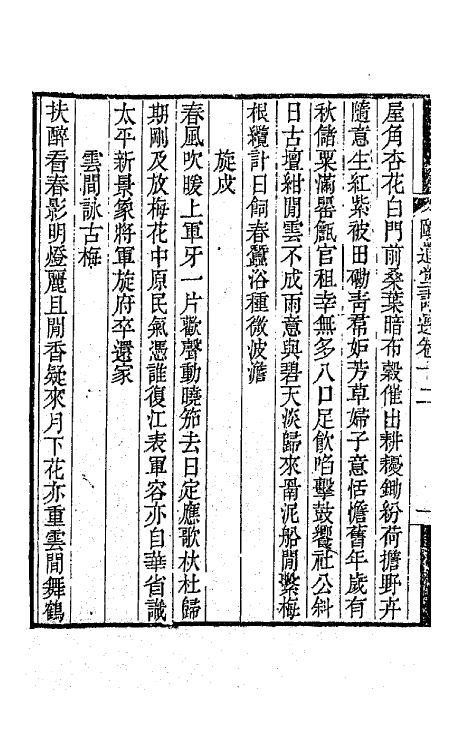 屋角杏花白門前桑葉暗布穀催出耕耰鋤紛荷擔野卉
隨意生紅紫被田磡靑帬妬芳草婦子意恬憺舊年歲有
秋儲粟滿罌甔官租幸無多八口足飮啗擊鼓饗社公斜
日古壇紺閒雲不成雨意與碧天淡歸來屚泥船閒繫梅
根纜計日飼春蠶浴種微波澹
旋戍
春風吹暖上軍牙一片歡聲動曉笳去日定應歌杕杜歸
期剛及放梅花中原民氣憑誰復江表軍容亦自華省識
太平新景象將軍旋府卒還家
雲間詠古梅
扶醉看春影明燈麗且閒香疑來月下花亦重雲間舞鶴